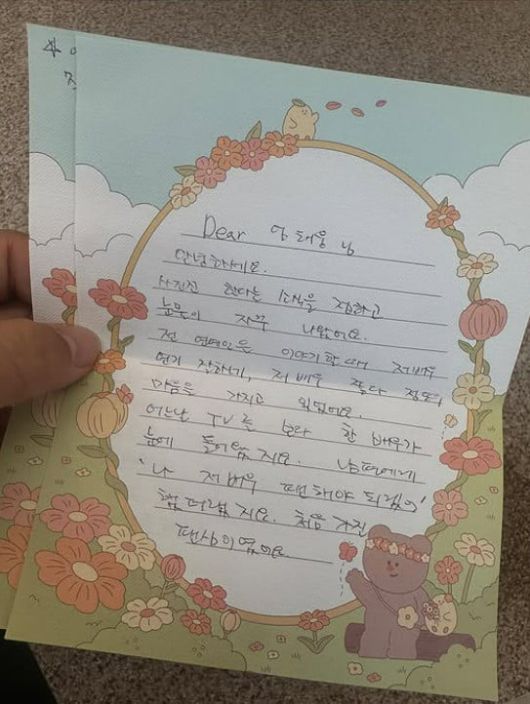 Dear 엄태웅 님
안녕하세요.
사진전 한다는 소식을 접하고
눈물이 자꾸 나왔어요.
전 연예인은 이야기 할 때 저 배우
연기 잘하네, 저 배우 좋다 정도의
마음을 가지고 있었어요.
어느날 TV를 보다 한 배우가
눈에 들어왔지요. 남편에게
'나 저 배우 팬 해야 되겠어'
해 버렸지요. 처음 가진
팬심이였어요